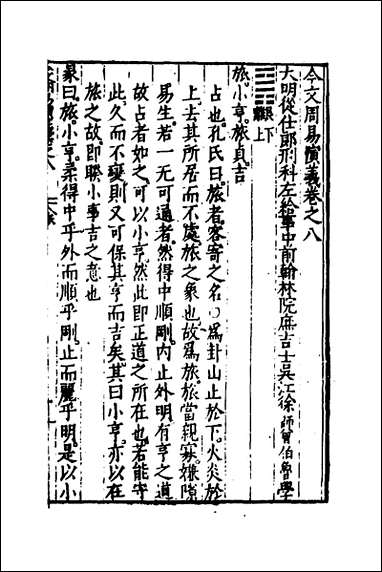 今文周易演義卷之八
大明從仕郎刑科左給事中前翰林院庶吉士吳江徐師曾伯魯學
艮下
離上
旅。小亨。旅貞吉
占也孔氏曰旅者客寄之名○爲卦山止於下。火炎於
上。去其所居而不處。旅之象也。故爲旅。旅當親寡。嫌隙
易生。若一无可通者。然得中順剛。内止外明。有亨之道
故占者如之。可以小亨。然此即正道之所在也。若能守
此。久而不變。則又可保其亨而吉矣。其曰小亨。亦以在
旅之故。即睽小事吉之意也
彖曰。旅。小亨。柔得中乎外而順乎剛。止而麗乎明。是以小